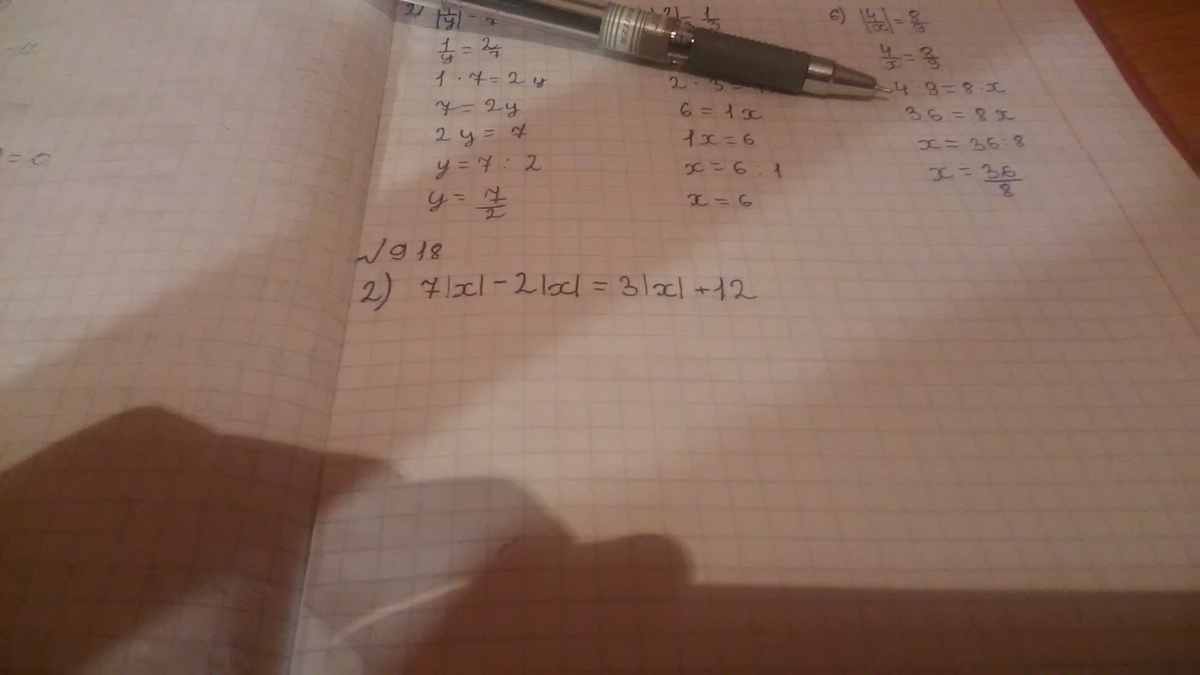 2) |1/y| =
1/y = 2/7
1 · 7 = 2 y
7 = 2y
2 y = 7
y = 7 : 2
y = 7/2
1/3
2 · 3 =
6 = 1x
1x = 6
x = 6 : 1
x = 6
6) |4/x| = 8/9
4/x = 8/9
4 · 9 = 8 · x
36 = 8 x
x = 36 : 8
x = 36/8
= 0
№918
2) 7|x| - 2|x| = 3|x| + 12